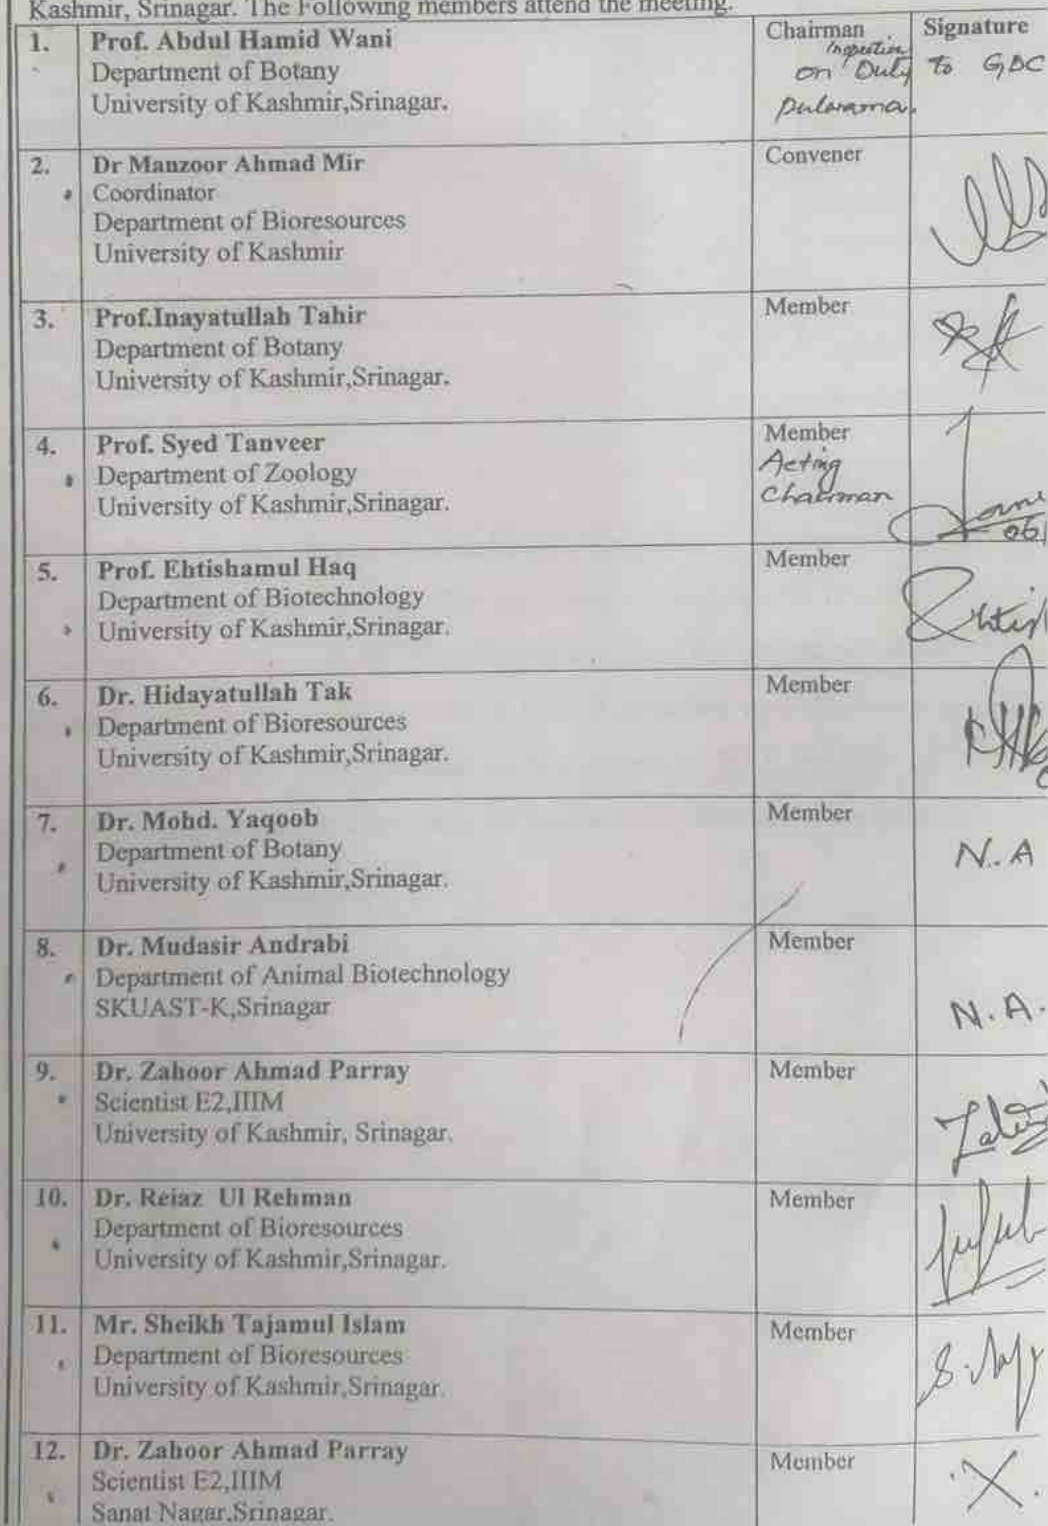 Kashmir, Srinagar. The Following members attend the meeting.
1. Prof. Abdul Hamid Wani
Department of Botany
University of Kashmir,Srinagar.
Chairman
Inspection
on Duty to GDC
Signature
2. Dr Manzoor Ahmad Mir
Coordinator
Department of Bioresources
University of Kashmir
Convener
3. Prof.Inayatullah Tahir
Department of Botany
University of Kashmir,Srinagar.
Member
4. Prof. Syed Tanveer
Department of Zoology
University of Kashmir,Srinagar.
Member
Acting
Chairman
5. Prof. Ehtishamul Haq
Department of Biotechnology
University of Kashmir,Srinagar.
Member
6. Dr. Hidayatullah Tak
Department of Bioresources
University of Kashmir,Srinagar.
Member
7. Dr. Mohd. Yaqoob
Department of Botany
University of Kashmir,Srinagar.
Member
N.A
8. Dr. Mudasir Andrabi
Department of Animal Biotechnology
SKUAST-K,Srinagar
Member
N.A.
9. Dr. Zahoor Ahmad Parray
Scientist E2,IIIM
University of Kashmir, Srinagar.
Member
10. Dr. Reiaz Ul Rehman
Department of Bioresources
University of Kashmir,Srinagar.
Member
11. Mr. Sheikh Tajamul Islam
Department of Bioresources
University of Kashmir,Srinagar.
Member
12. Dr. Zahoor Ahmad Parray
Scientist E2,IIIM
Sanat Nagar,Srinagar.
Member
X